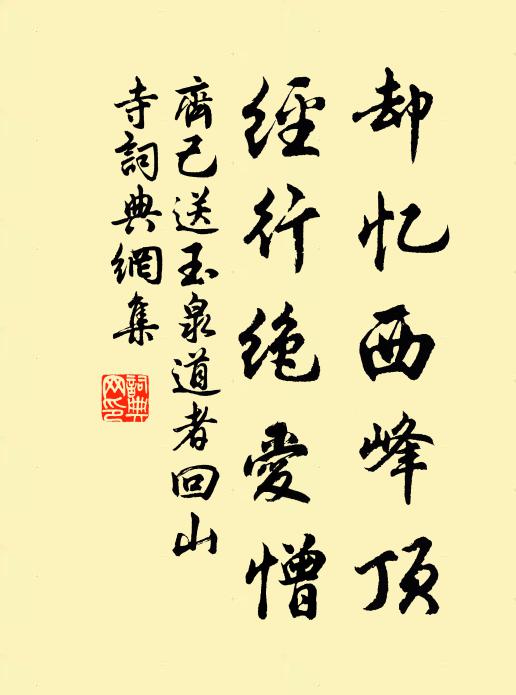 却忆西峰顶
经行绝爱憎
齊己送玉泉道者回山
寺詞典網集
詞典网印